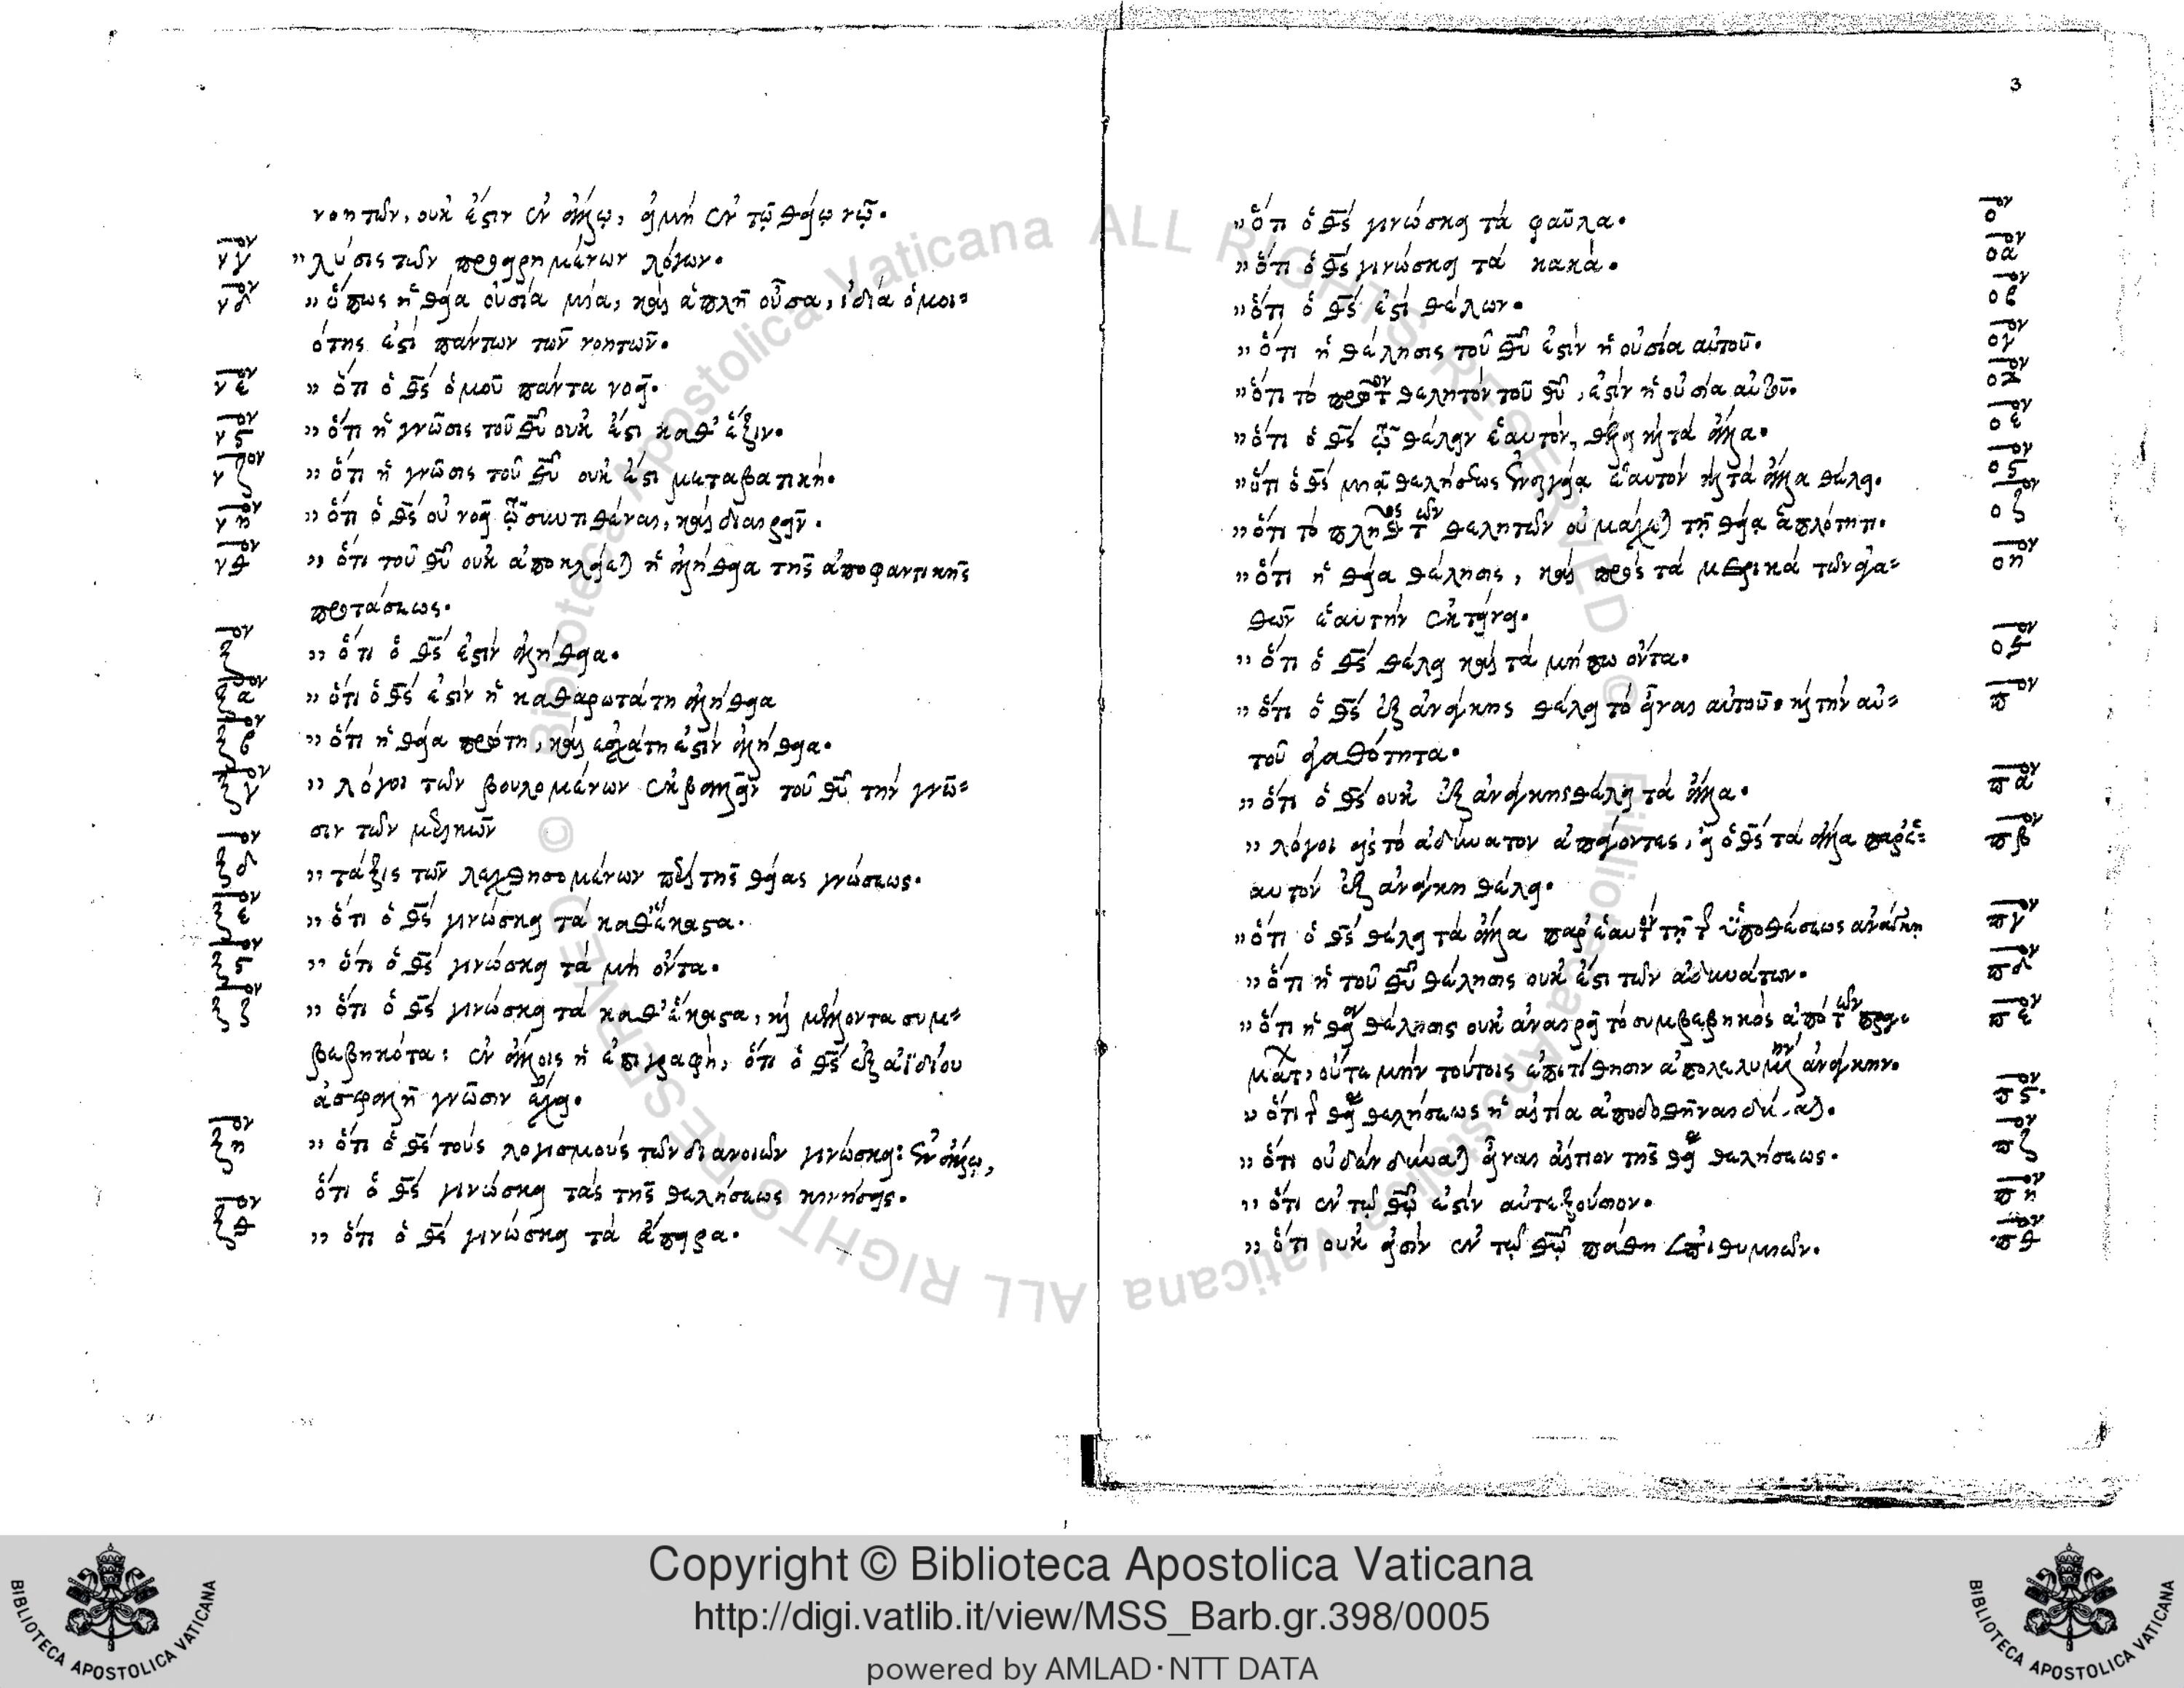 νοητῶν, οὐκ ἔστιν ἐν ἄλλῳ, εἰμὴ ἐν τῷ θείῳ νῷ.
νγ͞ον " λύσις τῶν προειρημένων λόγων.
νδ͞ον " ὅπως ἡ θεία οὐσία μία, καὶ ἁπλῆ οὖσα, ἰδία ὁμοι=
ότης ἐστὶ πάντων τῶν νοητῶν.
νε͞ον " ὅτι ὁ θ͞ς ὁμοῦ πάντα νοεῖ.
νϛ͞ον " ὅτι ἡ γνῶσις τοῦ θ͞υ οὐκ ἔστι καθ' ἕξιν.
νζ͞ον " ὅτι ἡ γνῶσις τοῦ θ͞υ οὐκ ἔστι μεταβατική.
νη͞ον " ὅτι ὁ θ͞ς οὐ νοεῖ τῷ συντιθέναι, καὶ διαιρεῖν.
νθ͞ον " ὅτι τοῦ θ͞υ οὐκ ἀποκλείεται ἡ ἀλήθεια τῆς ἀποφαντικῆς
προτάσεως.
ξ͞ον " ὅτι ὁ θ͞ς ἐστὶν ἀλήθεια.
ξα͞ον " ὅτι ὁ θ͞ς ἐστὶν ἡ καθαρωτάτη ἀλήθεια
ξβ͞ον " ὅτι ἡ θεία πρώτη, καὶ ἐσχάτη ἐστὶν ἀλήθεια.
ξγ͞ον " λόγοι τῶν βουλομένων ἐκβαλεῖν τοῦ θ͞υ τὴν γνῶ=
σιν τῶν μερικῶν
ξδ͞ον " τάξις τῶν λεχθησομένων περὶ τῆς θείας γνώσεως.
ξε͞ον " ὅτι ὁ θ͞ς γινώσκει τὰ καθέκαστα.
ξϛ͞ον " ὅτι ὁ θ͞ς γινώσκει τὰ μὴ ὄντα.
ξζ͞ον " ὅτι ὁ θ͞ς γινώσκει τὰ καθ' ἕκαστα, καὶ μέλλοντα συμ=
βεβηκότα: ἐν ἄλλοις ἡ ἐπιγραφὴ, ὅτι ὁ θ͞ς ἐξ ἀϊδίου
ἀσφαλῆ γνῶσιν ἔχει.
ξη͞ον " ὅτι ὁ θ͞ς τοὺς λογισμοὺς τῶν διανοιῶν γινώσκει: ἐν ἄλλῳ,
ὅτι ὁ θ͞ς γινώσκει τὰς τῆς θελήσεως κινήσεις.
ξθ͞ον " ὅτι ὁ θ͞ς γινώσκει τὰ ἄπειρα.
3
" ὅτι ὁ θ͞ς γινώσκει τὰ φαῦλα. ο͞ον
" ὅτι ὁ θ͞ς γινώσκει τὰ κακά. οα͞ον
" ὅτι ὁ θ͞ς ἐστὶ θέλων. οβ͞ον
" ὅτι ἡ θέλησις τοῦ θ͞υ ἐστὶν ἡ οὐσία αὐτοῦ. ογ͞ον
" ὅτι τὸ πρῶτον θελητὸν τοῦ θ͞υ, ἐστὶν ἡ οὐσία αὐτοῦ. οδ͞ον
" ὅτι ὁ θ͞ς τῷ θέλειν ἑαυτὸν, θέλει καὶ τὰ ἄλλα. οε͞ον
" ὅτι ὁ θ͞ς μιᾷ θελήσεως ἐνεργείᾳ ἑαυτὸν καὶ τὰ ἄλλα θέλει. οϛ͞ον
" ὅτι τὸ πλῆθος τῶν θελητῶν οὐ μάχεται τῇ θείᾳ ἁπλότητι. οζ͞ον
" ὅτι ἡ θεία θέλησις, καὶ πρὸς τὰ μερικὰ τῶν ἀγα= οη͞ον
θῶν ἑαυτὴν ἐκτείνει.
" ὅτι ὁ θ͞ς θέλει καὶ τὰ μήπω ὄντα. οθ͞ον
" ὅτι ὁ θ͞ς ἐξ ἀνάγκης θέλει τὸ εἶναι αὐτοῦ. καὶ τὴν αὐ= π͞ον
τοῦ ἀγαθότητα.
" ὅτι ὁ θ͞ς οὐκ ἐξ ἀνάγκης θέλει τὰ ἄλλα. πα͞ον
" λόγοι εἰς τὸ ἀδύνατον ἀπάγοντες, εἰ ὁ θ͞ς τὰ ἄλλα παρ' ἑ= πβ͞ον
αυτὸν ἐξ ἀνάγκη θέλει.
" ὅτι ὁ θ͞ς θέλει τὰ ἄλλα παρ' ἑαυτὸν τῇ τῆς ὑποθέσεως ἀνάγκῃ πγ͞ον
" ὅτι ἡ τοῦ θ͞υ θέλησις οὐκ ἔστι τῶν ἀδυνάτων. πδ͞ον
" ὅτι ἡ θεία θέλησις οὐκ ἀναιρεῖ τὸ συμβεβηκὸς ἀπὸ τῶν πραγ= πε͞ον
μάτων, οὔτε μὴν τούτοις ἐπιτίθησιν ἀπολελυμένην ἀνάγκην.
" ὅτι τῆς θείας θελήσεως ἡ αἰτία ἀποδοθῆναι δύναται. πϛ͞ον
" ὅτι οὐδὲν δύναται εἶναι αἴτιον τῆς θείας θελήσεως. πζ͞ον
" ὅτι ἐν τῷ θ͞ῷ ἐστὶν αὐτεξούσιον. πη͞ον
" ὅτι οὐκ εἰσὶν ἐν τῷ θ͞ῷ πάθη ἐπιθυμιῶν. πθ͞ον
Copyright © Biblioteca Apostolica Vaticana
http://digi.vatlib.it/view/MSS_Barb.gr.398/0005
powered by AMLAD·NTT DATA
BIBLIOTECA APOSTOLICA VATICANA
BIBLIOTECA APOSTOLICA VATICANA
© Biblioteca Apostolica Vaticana ALL RIGHTS RESERVED
© Biblioteca Apostolica Vaticana ALL RIGHTS RESERVED